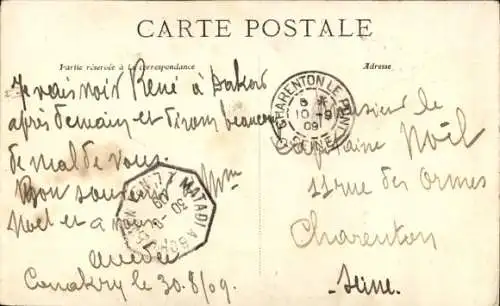 CARTE POSTALE
Partie réservée à la correspondance
Adresse
Je vais voir René à Dakar
après demain et dirons beaucoup
de mal de vous.
Bon souvenir à Mme
Noël et à vous
Conakry le 30.8/09.
CHARENTON LE PONT
10-9
09
SEINE
MATADI A BORDEAUX
30
09
Monsieur le
Capitaine Noël
11 rue des Ormes
Charenton
Seine.